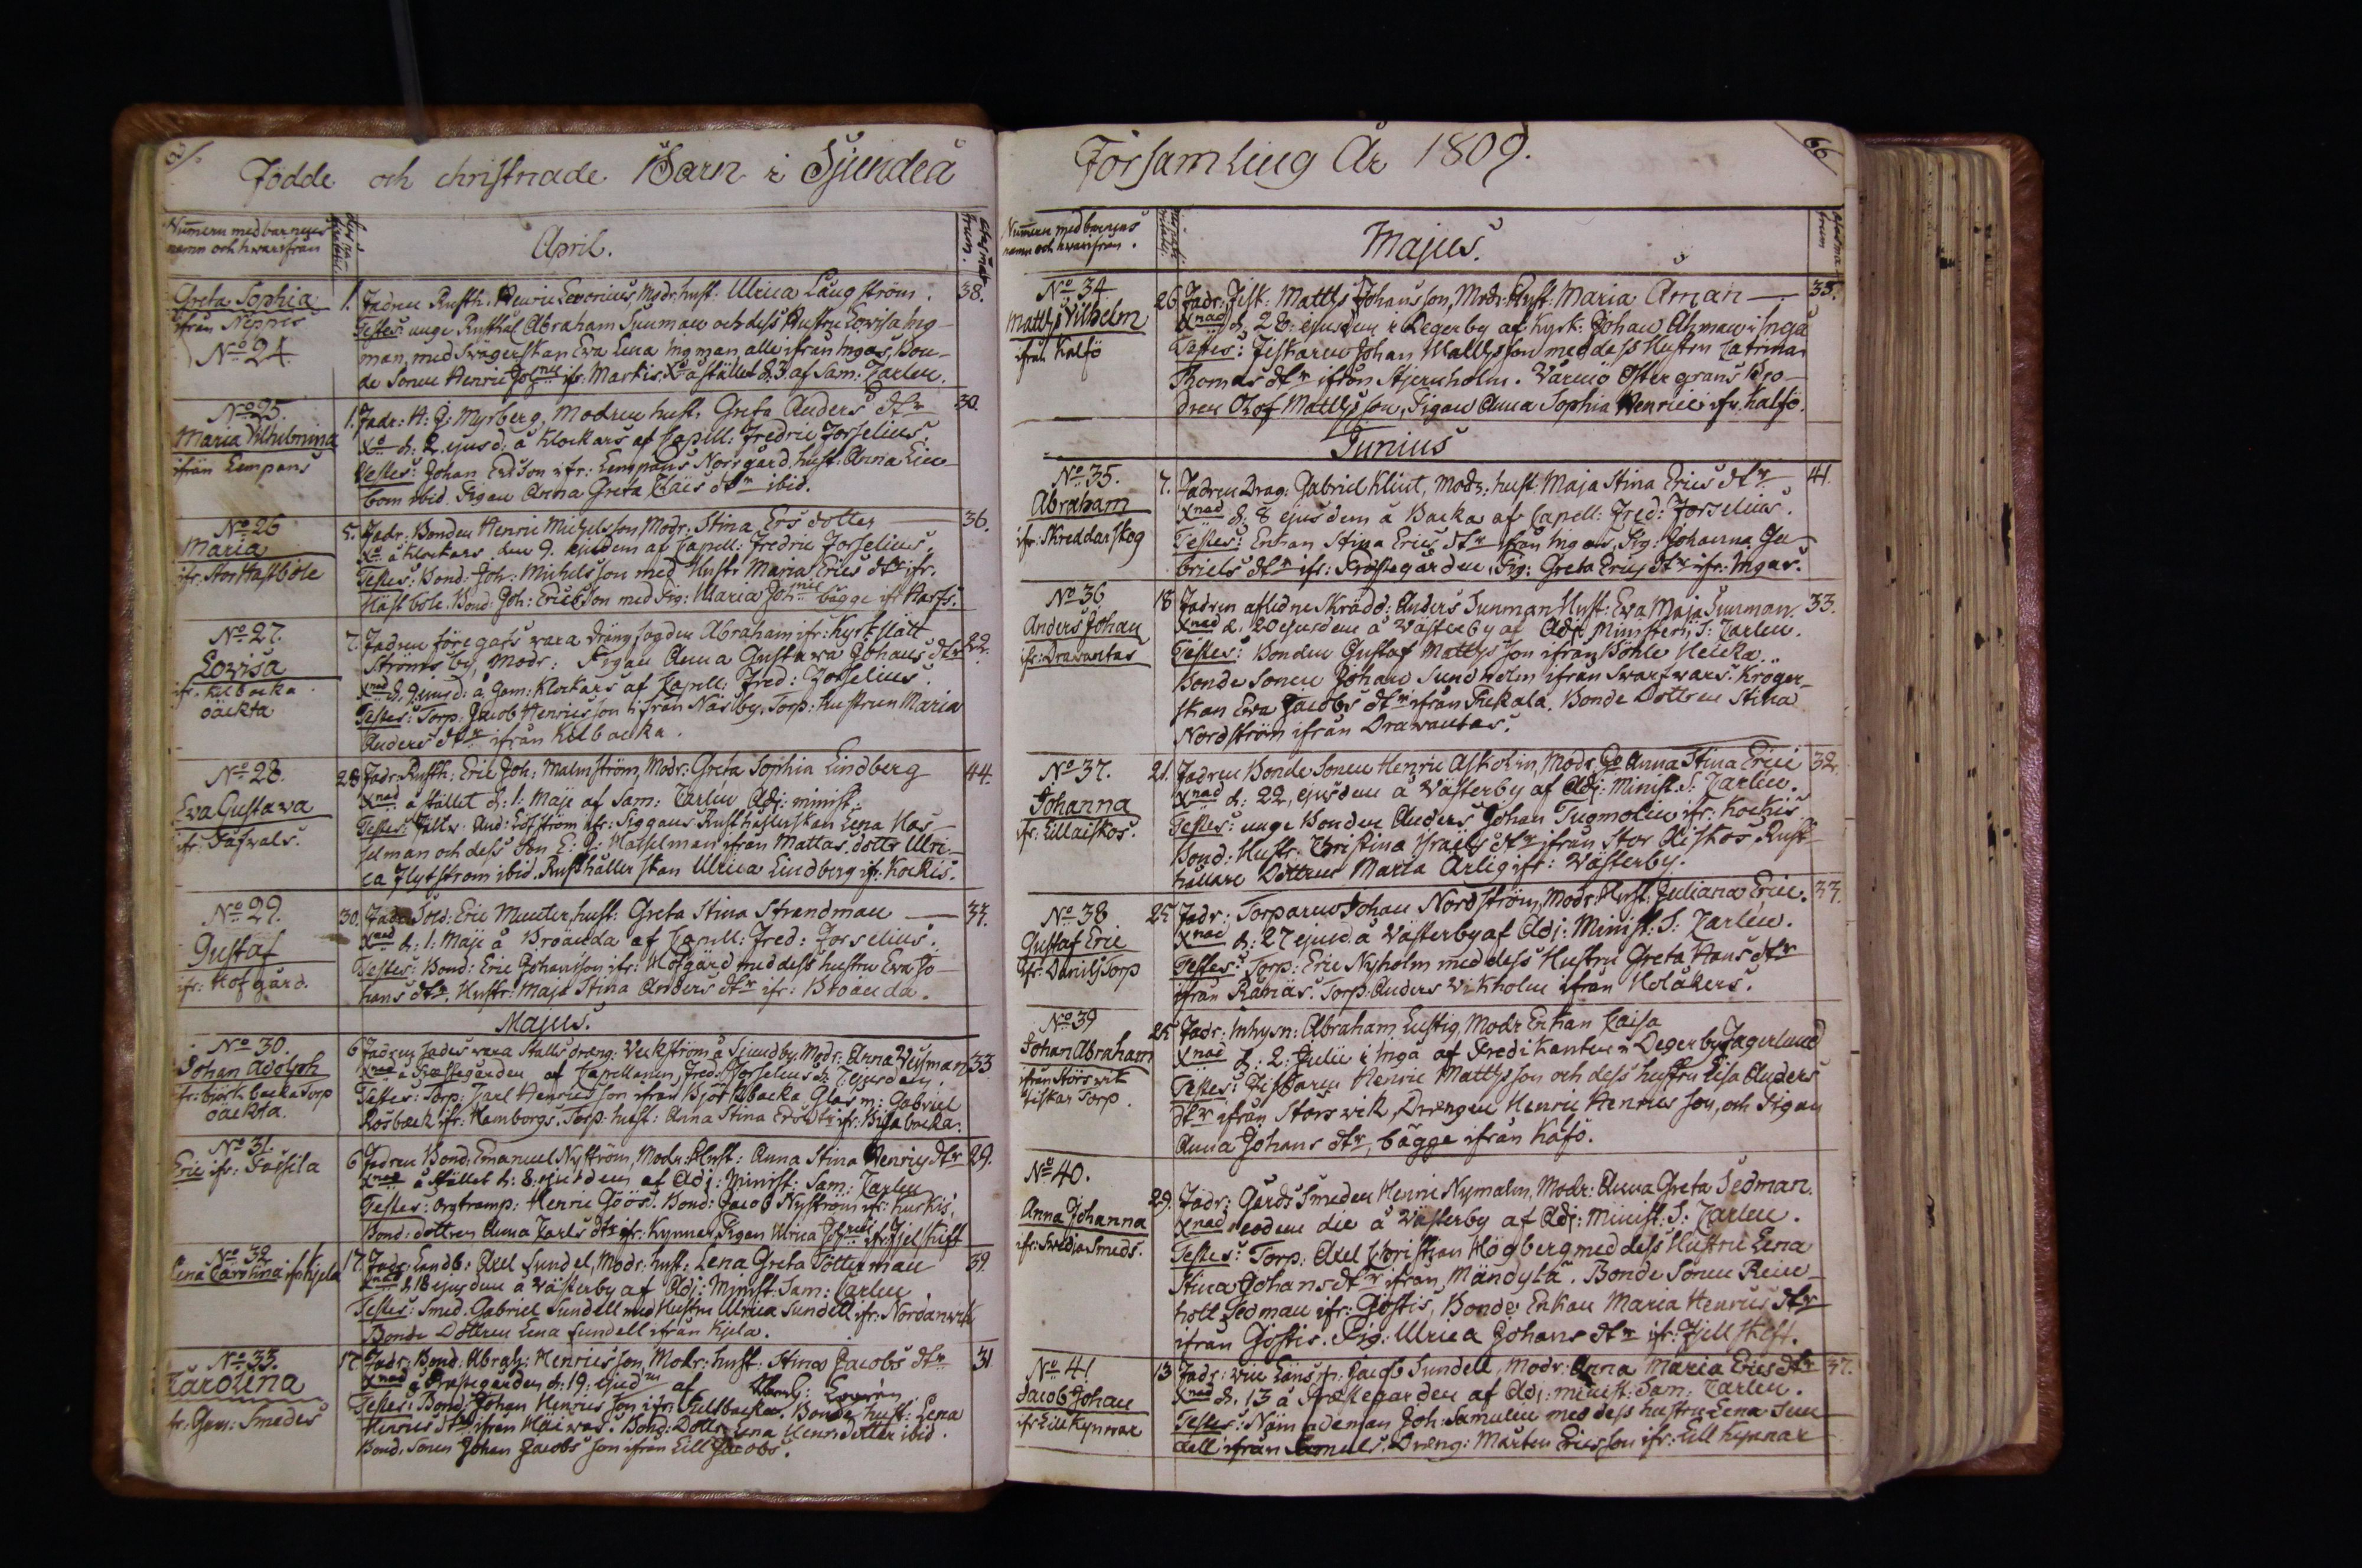 Födde och christnade Barn i Sjundeå
Nummern med barnens
namn och hwarifrån
April.
Greta Sophia
ifrån Nippis
No 24.
1. Fadren Rusth: Henric Levonius, Modr: hust: Ulrica Långström. 38.
Testes: unge Rusthål Abraham Sunman och dess Hustru Lovisa Ing-
man, med Swägerskan Eva Lena Ingman, alla ifrån Ingas, Bon-
de Sonen Henric Joh ifr: Martis. Xo å stället d. 3 af Sam: Carlen.
No 25.
Maria Vilhelmina
ifrån Lempans
1. Fadr: H: G: Myrberg, Modren hust: Greta Anders dtr 30.
Xo d: 2 ejusd: å Klockars af Capell: Fredric Forselius.
Testes: Johan Ersson ifr: Lempans Norrgård, hust: Anna Lin-
bom ibid. Pigan Anna Greta Cajs dtr ibid.
No 26
Maria
ifr: Stor Hastböle
5. Fadr: Bonden Henric Michelsson, Modr: Stina Ers dotter 36.
Xo å Klockars den 9. ejusdem af Capell: Fredric Forselius.
Testes: Bond: Joh: Michelsson med Hustr Maria Erics dtr ifr.
Hästböle. Bond: Joh: Ericsson med Pig: Maria Joh bägge ifr Harfs.
No 27.
Lovisa
ifr: Kilbacka
oäckta
7. Fadren föregafs vara drängfogden Abraham ifr: Kyrkslätt
Strömsby, Modr: Pigan Anna Gustava Johans dtr 22.
Xnad d. 9 ejusd: å Gam: Klockars af Capell: Fred: Forselius.
Testes: Torp: Jacob Henricsson ifrån Näsby. Torp: hustrun Maria
Anders dtr ifrån Kilbacka.
No 28.
Eva Gustava
ifr: Fafwals.
28. Fadr: Rusth: Eric Joh: Malmström, Modr: Greta Sophia Lindberg 44.
Xnad å stället d: 1: Maji af Sam: Carlen Adj: minist:
Testes: And: Löfström ifr: Siggans Rusthållerskan Lena Has-
selman och dess Son E: G: Hasselman ifrån Mattas. dottr Ulri-
ca Flytström ibid. Rusthållerskan Ulrica Lindberg ifr: Kockis.
No 29.
Gustaf
ifr: Hofgård.
30. Fadr: Sold: Eric Munter, hust: Greta Stina Strandman 37.
Xnad d: 1: Maji å Broända af Capell: Fred: Forselius.
Testes: Bond: Eric Johansson ifr: Hofgård med dess hustru Eva Jo-
hans dtr. Hustr: Maja Stina Anders dtr ifr: Broända.
Majus.
No 30.
Johan Adolph
ifr: Björkbacka Torp
oäckta.
6 Fadren sades vara Stallsdräng: Veckström å Sjundby. Modr: Anna Veisman 33
Xnad å Prästegården af Capellanen Fred: Forselius d: 7. ejusdem.
Testes: Torp: Carl Henricsson ifrån Björkbacka Glasm: Gabriel
Rosbäck ifr: Hamborgs. Torp: hust: Anna Stina Ers dtr ifr: Bisabacka.
No 31.
Eric ifr: Tössila
6 Fadren Bond: Emanuel Nyström, Modr: Hust: Anna Stina Henrics dtr 29.
Xnad å stället d: 8. ejusdem af Adj: Minist: Sam: Carlen
Testes: Orgtramp: Henric Göös. Bond: Jacob Nyström ifr: Kuskis.
Bond: dottren Anna Carls dtr ifr: Kynnar, Pigan Ulrica Joh ifr: Fjelskift
No 32
Lena Carolina ifr: Kjela
17. Fadr: Landb: Axel Sundel, Modr: hust: Lena Greta Totterman 39.
Xnad d. 18 ejusdem å Västerby af Adj: Minist: Sam: Carlen
Testes: Smed: Gabriel Sundell med Hustru Ulrica Sundell ifr: Nordanvik
Bonde Dottren Lena Sundell ifrån Kjela.
No 33.
Carolina
fr: Gam: Smeds
17. Fadr: Bond: Abrah: Henricsson, Modr: hust: Stina Jacobs dtr 31
Xnad å Prästegården d: 19: ejusd af
Testes: Bond: Johan Henricsson ifr: Sulsbacka. Bonde hust: Lena
Henrics dtr ifrån Häiwas. Bond: Dottr Lena Henr: dotter ibid.
Bond: Sonen Johan Jacobs son ifrån Lill Jacobs.
Församling År 1809.
66
Nummern med barnens
namn och hwarifrån.
Majus.
No 34
Matths Vilhelm
ifrån Kalfö
26. Fadr: Fisk: Matths Johansson, Modr: Hust: Maria Öman 35.
Xnad d. 28: ejusdem i Degerby af Kyrk: Johan Åhman i Ingå
Testes: Fiskaren Johan Mattsson med dess Hustru Catrina
Thomas dtr ifrån Stjernholm. Varmö Östergrans Bro-
dren Olof Mattsson, Pigan Anna Sophia Henrici ifr. Kalfö.
Junius
No 35.
Abraham
ifr: Skreddarskog
7. Fadren Drag: Gabriel Klint, Modr: hust: Maja Stina Erics dtr 41.
Xnad d: 8 ejusdem å Backa af Capell: Fred: Forselius.
Testes: Enkan Stina Erics dtr ifrån Ingas, Pig: Johanna Ga-
briels dtr ifr: Prästegården. Pig: Greta Erics dtr ifr: Ingas.
No 36
Anders Johan
ifr: Drawantas
18 Fadren afledne Skrädd: Anders Sunman Hust: Eva Maja Sunman. 33.
Xnad d. 20 ejusdem å Västerby af Adj: Ministern, S: Carlen.
Testes: Bonden Gustaf Mattsson ifrån Böhle Heicka.
Bonde Sonen Johan Sundholm ifrån Svartvars. Kröger-
skan Eva Jacobs dtr ifrån Pickala. Bonde Dottren Stina
Nordström ifrån Drawantas.
No 37.
Johanna
ifr: Lillaiskos.
21. Fadren Bonde Sonen Henric Askolin, Modr: Anna Stina Erici 32.
Xnad d: 22, ejusdem å Västerby af Adj: Minist: S: Carlen.
Testes: unge Bonden Anders Johan Tugmolin ifr: Kockis.
Bond: Hustr: Christina Israels dtr ifrån Stor Aiskos. Rust-
hållare Dottren Maria Ärlig ifr: Västerby.
No 38
Gustaf Eric
ifr: Danils Torp
25 Fadr: Torparen Johan Nordström, Modr: Hust: Juliana Eric. 33.
Xnad d: 27 ejusd. å Västerby af Adj: Minist: S: Carlen.
Testes: Torp: Eric Nyholm med dess Hustru Greta Hans dtr
ifrån Ränäs. Torp: Anders Vikholm ifrån Holåkers.
No 39
Johan Abraham
ifrån Störsvik
Fiskar Torp.
25 Fadr: Inhysn: Abraham Lustig, Modr Enkan Caisa
Xnad d: 2: Julii i Ingå af Predikanten i Degerby Fagerlund
Testes: Fiskaren Henric Mattsson och dess hustru Lisa Anders
dtr ifrån Störsvik, Drengen Henric Henricsson, och Pigan
Anna Johans dtr, bägge ifrån Kafö.
No 40.
Anna Johanna
ifr: Svedja Smeds.
29. Fadr: Gårds Smeden Henric Nymalm, Modr: Anna Greta Sedman.
Xnad eodem die å Västerby af Adj: Minist: S: Carlen.
Testes: Torp: Axel Christian Högberg med dess Hustru Lena
Stina Johans dtr ifrån Mändylä. Bonde Sonen Rein-
holt Sedman ifr: Göstis, Bonde Enkan Maria Henrics dtr
ifrån Göstis. Pig: Ulrica Johans dtr ifr: Fjellskift.
No 41
Jacob Johan
ifr Lill Kynnar
13 Fadr: Vice Länsm: Jacob Sundell, Modr: Anna Maria Erics dtr 37.
Xnad d. 13 å Prästegården af Adj: minist: Sam: Carlen.
Testes: Nämndeman Joh: Samulin med dess hustru Lena Sun-
dell ifrån Samuls. Dreng: Mårten Ericsson ifr: Lill Kynnar